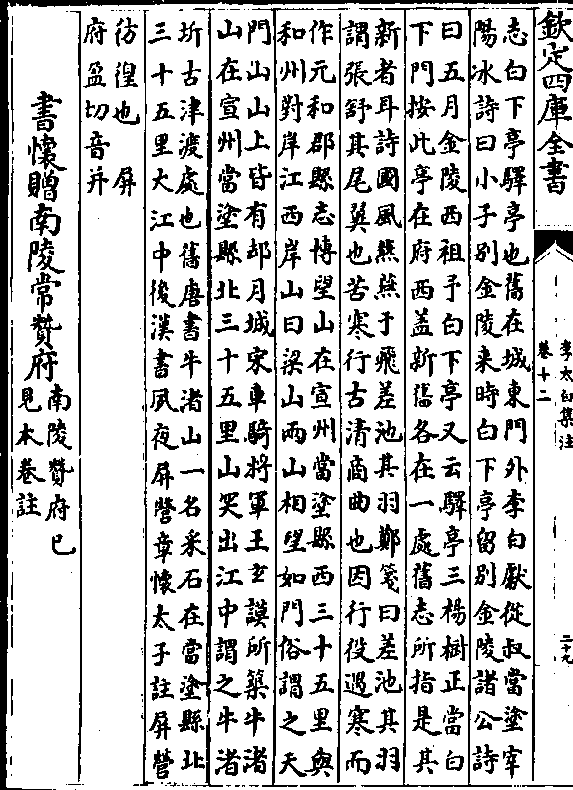 欽定四庫全書
李太白集注
卷十二
二十九
志白下亭驛亭也舊在城東門外李白獻從叔當塗宰
陽冰詩曰小子别金陵来時白下亭留别金陵諸公詩
曰五月金陵西祖予白下亭又云驛亭三楊樹正當白
下門按此亭在府西蓋新舊各在一處舊志所指是其
新者耳詩國風燕燕于飛差池其羽鄭箋曰差池其羽
謂張舒其尾翼也苦寒行古清商曲也因行役遇寒而
作元和郡縣志博望山在宣州當塗縣西三十五里與
和州對岸江西岸山曰梁山兩山相望如門俗謂之天
門山山上皆有却月城宋車騎將軍王玄謨所築牛渚
山在宣州當塗縣北三十五里山突出江中謂之牛渚
圻古津渡處也舊唐書牛渚山一名采石在當塗縣北
三十五里大江中後漢書夙夜屏營章懷太子註屏營
彷徨也屏
府盈切音并
書懷贈南陵常贊府
南陵贊府已
見本卷註